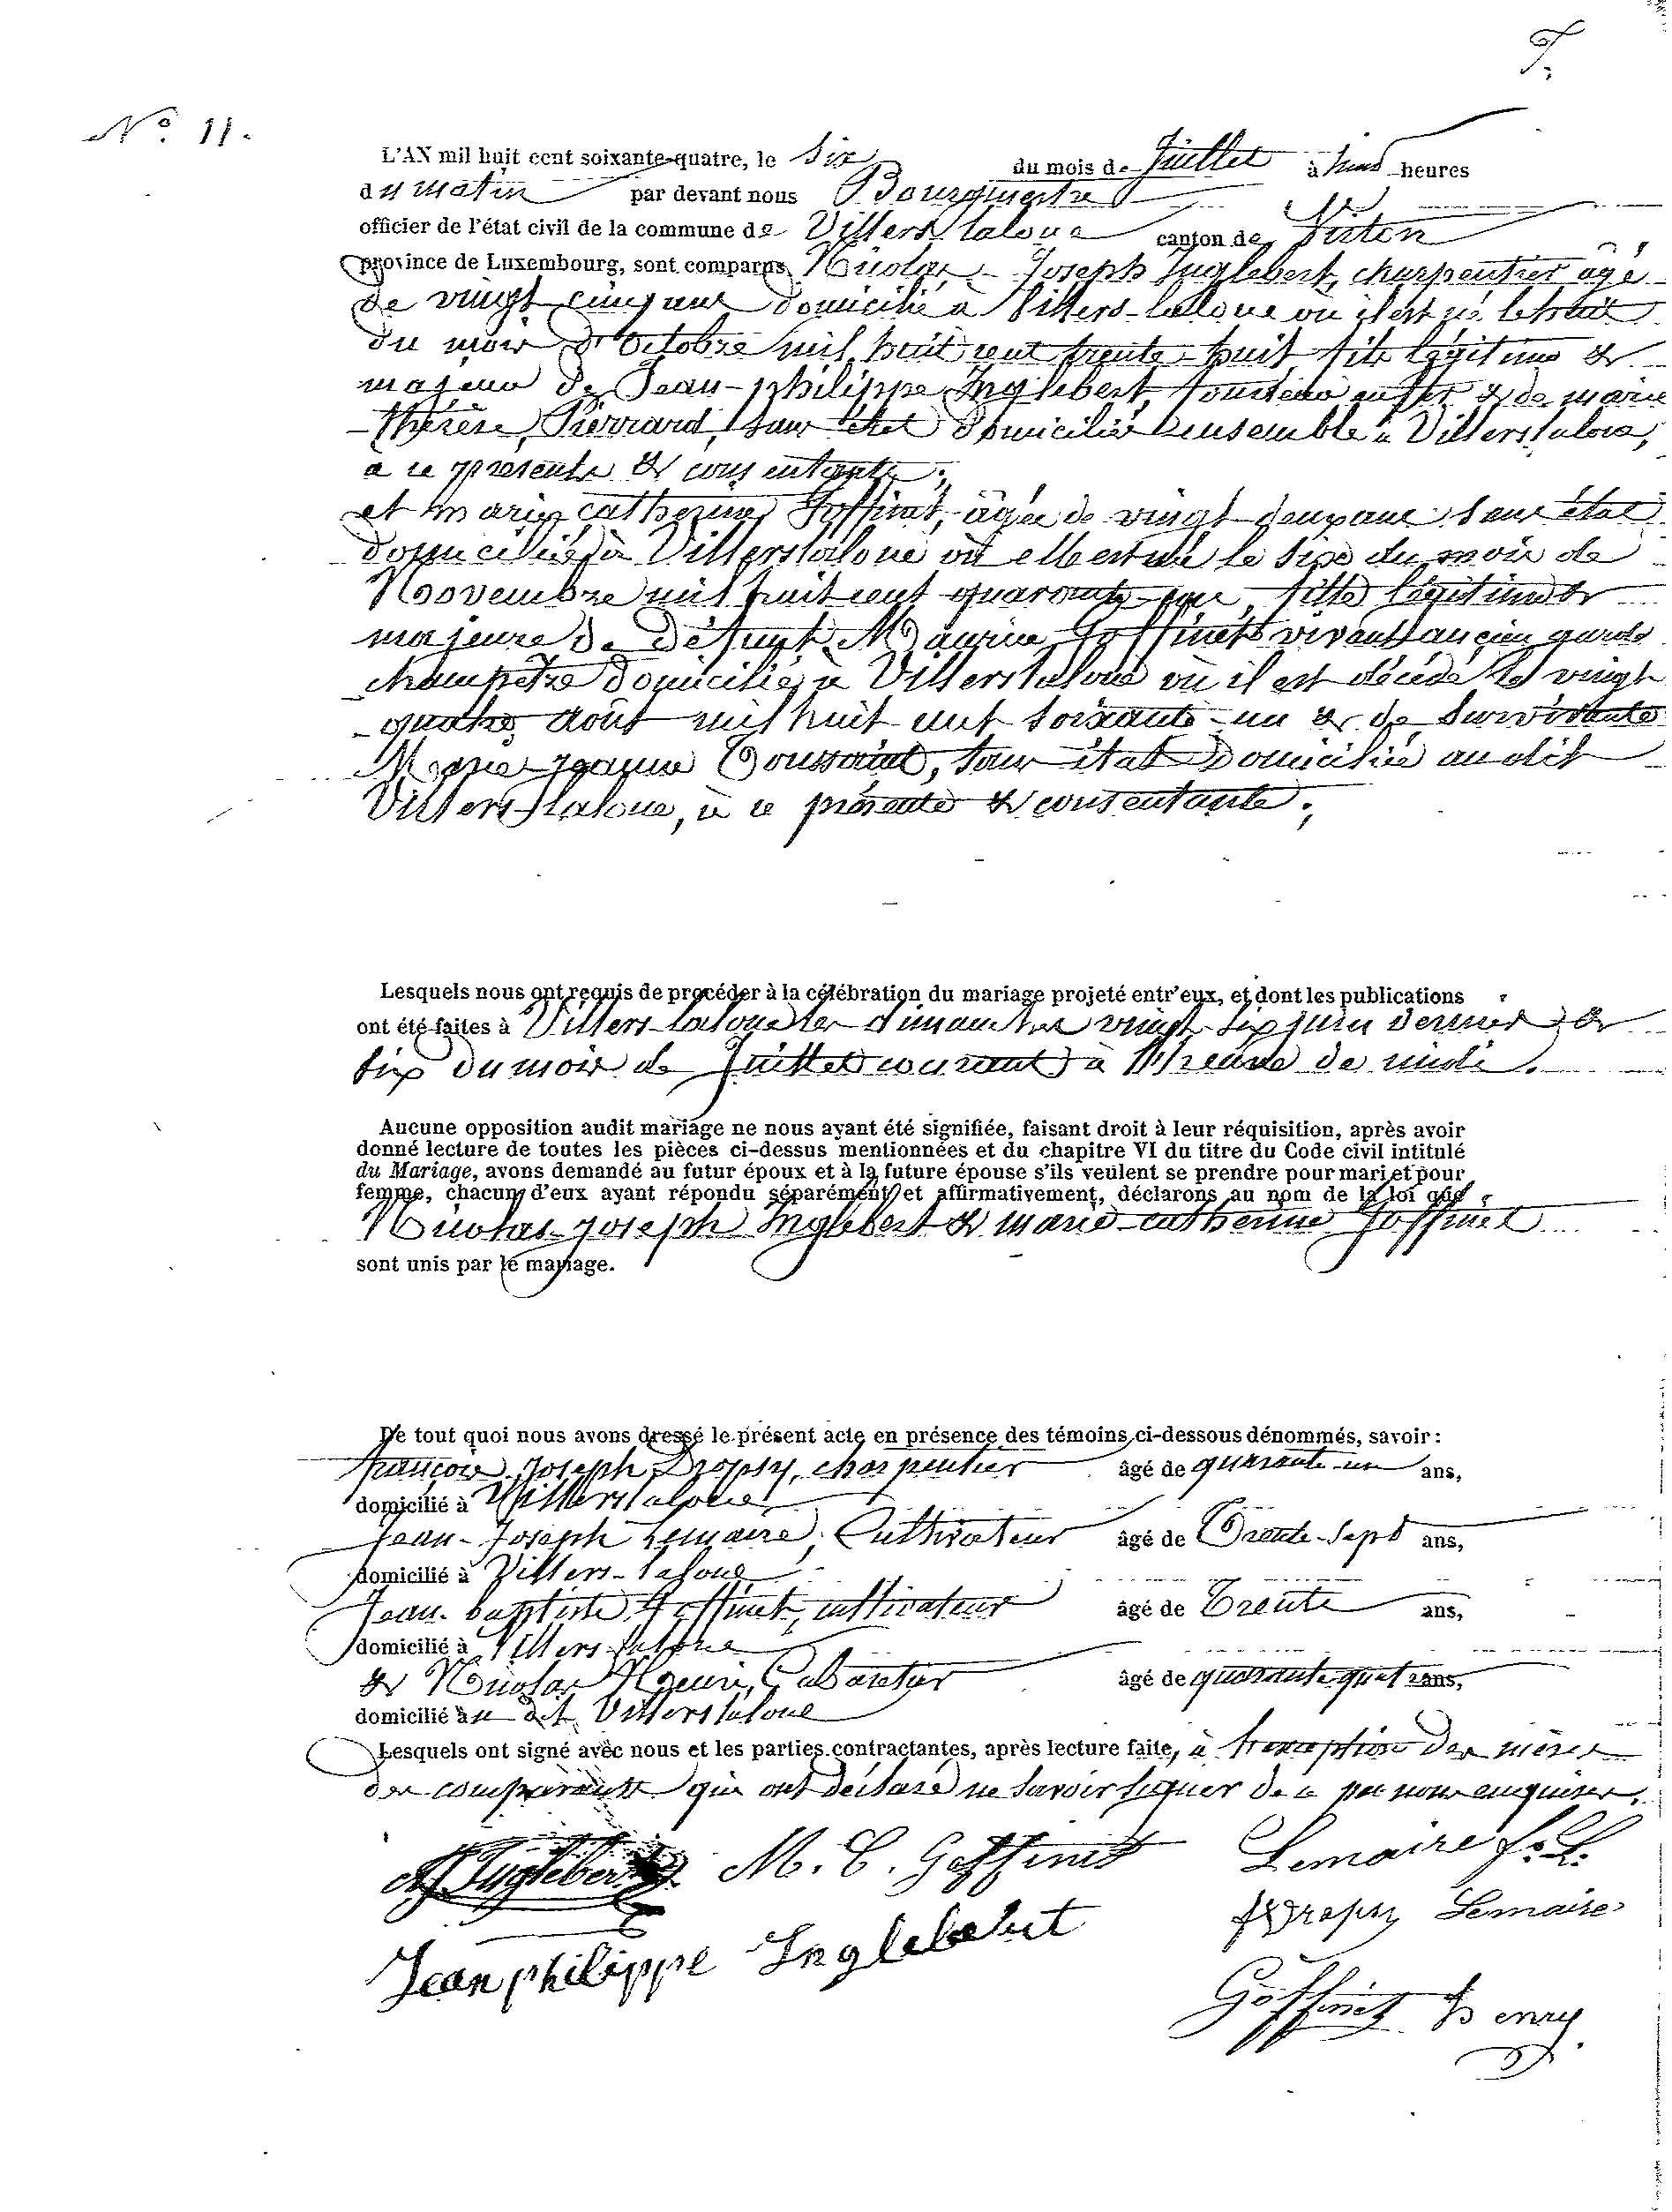 F.
N° 11.
L'AN mil huit cent soixante-quatre, le six du mois de Juillet à heures
du matin par devant nous Bourgmestre
officier de l'état civil de la commune de Villers laloue canton de Virton
province de Luxembourg, sont comparus Nicolas-Joseph Inglebert, charpentier âgé
de vingt cinq ans domicilié à Villers-laloue où il est né le huit
du mois d'Octobre mil huit cent trente-huit, fils légitime &
majeur de Jean-philippe Inglebert, & de marie
-thérèse Pierrard, sans état domiciliés ensemble à Villerslaloue,
à ce présents & consentants;
et marie catherine Goffinet, âgée de vingt deux ans sans état
domiciliée à Villerslaloue où elle est née le six du mois de
Novembre mil huit cent quarante un, fille légitime &
majeure de défunt Maurice Goffinet vivant ancien garde
champêtre domicilié à Villerslaloue où il est décédé le vingt
-quatre août mil huit cent soixante-un & de survivante
Marie-jeanne Toussaint, sans état domiciliée au dit
Villers-laloue, à ce présente & consentante;
Lesquels nous ont requis de procéder à la célébration du mariage projeté entr'eux, et dont les publications
ont été faites à Villers-laloue les dimanches vingt-six juin dernier &
six du mois de Juillet courant à l'heure de midi.
Aucune opposition audit mariage ne nous ayant été signifiée, faisant droit à leur réquisition, après avoir
donné lecture de toutes les pièces ci-dessus mentionnées et du chapitre VI du titre du Code civil intitulé
du Mariage, avons demandé au futur époux et à la future épouse s'ils veulent se prendre pour mari et pour
femme, chacun d'eux ayant répondu séparément et affirmativement, déclarons au nom de la loi que
Nicolas-joseph Inglebert & marie-catherine Goffinet
sont unis par le mariage.
De tout quoi nous avons dressé le présent acte en présence des témoins ci-dessous dénommés, savoir:
françois-Joseph Dropsy, charpentier âgé de quarante-un ans,
domicilié à Villerslaloue
Jean-Joseph Lemaire, Cultivateur âgé de Trente-sept ans,
domicilié à Villers-laloue
Jean-baptiste Goffinet, cultivateur âgé de Trente ans,
domicilié à Villers-laloue
& Nicolas Henri, Cabaretier âgé de quarante-quatre ans,
domicilié au dit Villerslaloue
Lesquels ont signé avec nous et les parties contractantes, après lecture faite, à l'exception des mères
des comparants qui ont déclaré ne savoir signer de ce par nous enquises.
NJ Inglebert M. C. Goffinet Lemaire J. L.
Dropsy Lemaire
Jean philippe Inglebert
Goffinet Henry